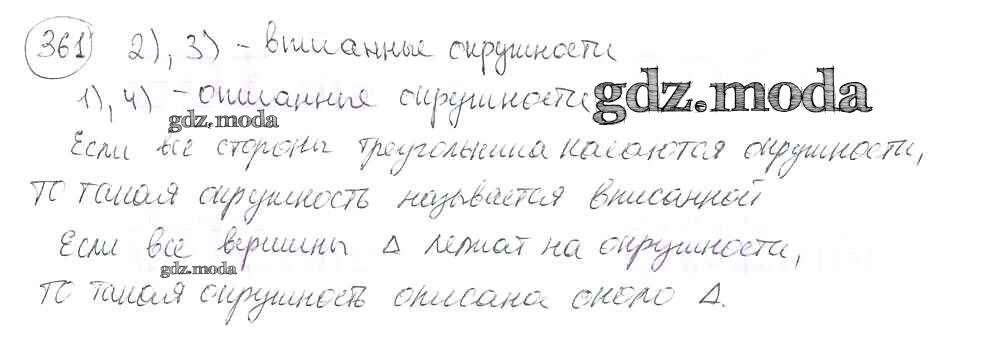 361 2), 3) - вписанные окружности
1), 4) - описанные окружности gdz.moda
gdz.moda
Если все стороны треугольника касаются окружности,
то такая окружность называется вписанной
Если все вершины Δ лежат на окружности,
gdz.moda
то такая окружность описана около Δ.